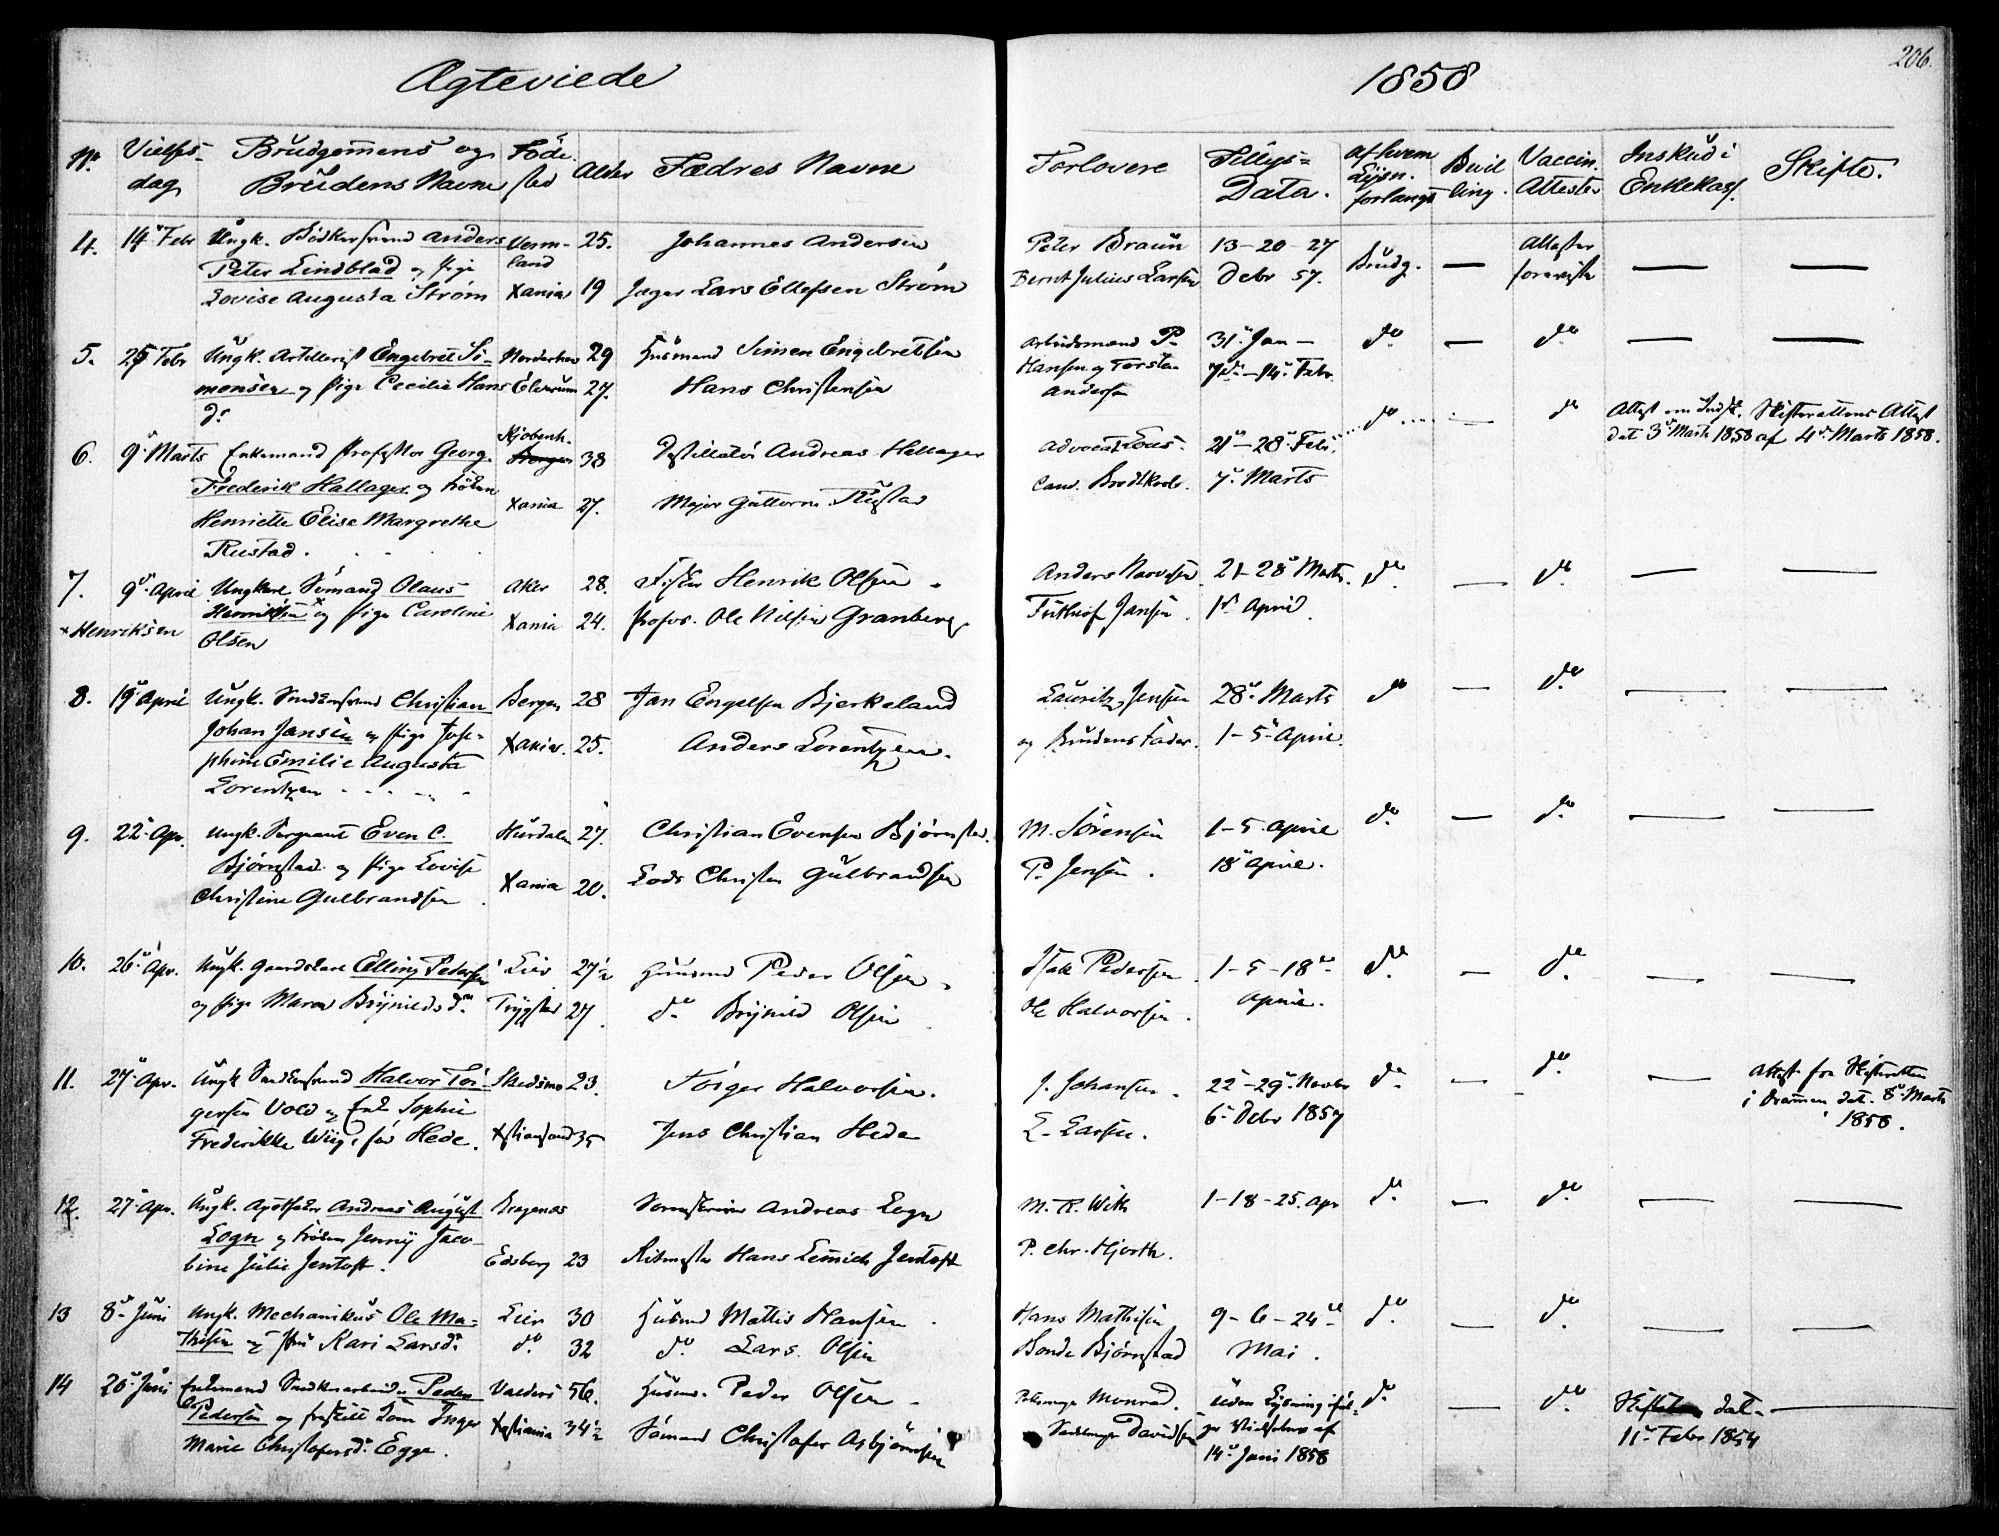 Ægteviede 1858
206.
No. Vielses-dag Brudgomens og Brudens Navne Føde-sted Alder Fædres Navne Forlovere Tillys-Data. af hvem Lysn. forlangt Bevilling. Vaccin. Attester Inskud i Enkekass. Skifte.
4. 14 Febr Ungk. Bödkersvend Anders Verm- 25. Johannes Andersen Peter Braun 13-20-27 Brudg. — Attester — —
Peter Lindblad og Pige land Bernt Julius Larsen Debr 57. foreviste
Lovise Augusta Strøm Xania 19 Jæger Lars Ellefsen Strøm
5. 25 Febr Ungk. Artillerist Engebret Si- Norderhov 29 Husmand Simen Engebretsen Arbeidsmand P. 31 Jan — do — do — —
mensen og Pige Cecilie Hans Elverum 27. Hans Christensen Hansen og Torsten 7de-14 Febr.
dr Andersen
6. 9 Marts Enkemand Professor Georg Kjøbenh. 38 Destillatør Andreas Hallager Advocat 21-28 Feb. do do Attest om Indsk. Skifterettens Attest
Frederik Hallager og Frøken Bergen Cand. 7 Marts dat 3 Marts 1858 af 4 Marts 1858.
Henriette Elise Margrethe Xania 27. Major Guttorm Rustad
Rustad.
7. 9 April Ungkarl Sömand Olaus Aker 28. Fisker Henrik Olsen Anders 21-28 Marts. do — do — —
× Henriksen Henriksen × og Pige Caroline Xania 24. Profos. Ole Nilsen Granberg Jansen. 1 April.
Olsen
8. 19 April Ungk. Snedkersvend Christian Bergen 28 Jan Engelsen Bjerkeland Lauritz Jensen 28 Marts do — do — —
Johan Jansen og Pige Jose- Xania. 25. Anders Lorentzen. og Brudens Fader. 1-5 April.
phine Emilie Augusta
Lorentzen
9. 22 Apr. Ungk. Sergeant Even C. Hurdalen 27. Christian Evensen Bjørnstad. M. Sörensen 1-5 April do — do — —
Bjørnstad og Pige Lovise P. Jensen. 18 April.
Christine Gulbrandsen Xania 20. Lods Christen Gulbrandsen
10. 26 Apr. Ungk. Gaardskarl Elling Pedersen Lier 27½ Husmd Peder Olsen. Pedersen 1-5-18 do — do — —
og Pige Maren Brynildsdr Trygstad 27 do Brynild Olsen Ole Halvorsen. April.
11. 27 Apr. Ungk Snedkersvend Halvor Tor- Skedsmo 23. Torger Halvorsen. J. Johansen 22-29 Novbr do — do — Attest fra Skifteretten
gersen Vold og Enke Sophie 6 Debr 1857 i Drammen dat. 8 Marts
Frederikke Wiig, før Hede. Xstiansand 35 Jens Christian Hede L. Larsen. 1858.
12. 27 Apr. Ungk. Apotheker Andreas August Bragenæs Sorenskriver Andreas Logn M. R. With 1-18-25. Apr do — do — —
Logn og Frøken Jenny Jaco- Edsberg 23 Ritmester Hans Lemich Jentoft P. Chr. Hjorth.
bine Julie Jentoft.
13 8 Juni Ungk. Mechanikus Ole Ma- Lier 30 Husmd Mattis Hansen Hans Mathisen 9-6-24 do — do — —
thisen og Pige Kari Larsdr do 32 do Lars Olsen Bonde Bjørnstad Mai.
14 20 Juni Enkemand Snedkerarbeid. Peder Valders 56. Husm. Peder Olsen Monrad. uden Lysning iføl- do — do dat. —
Pedersen og fraskilt Kone Inger Xstiania 34½ Sömand Christofer Asbjørnsen Davidsen ge Vielsebrev af 11 Febr 1854
Marie Christofersdr Egge. 14 Juni 1858